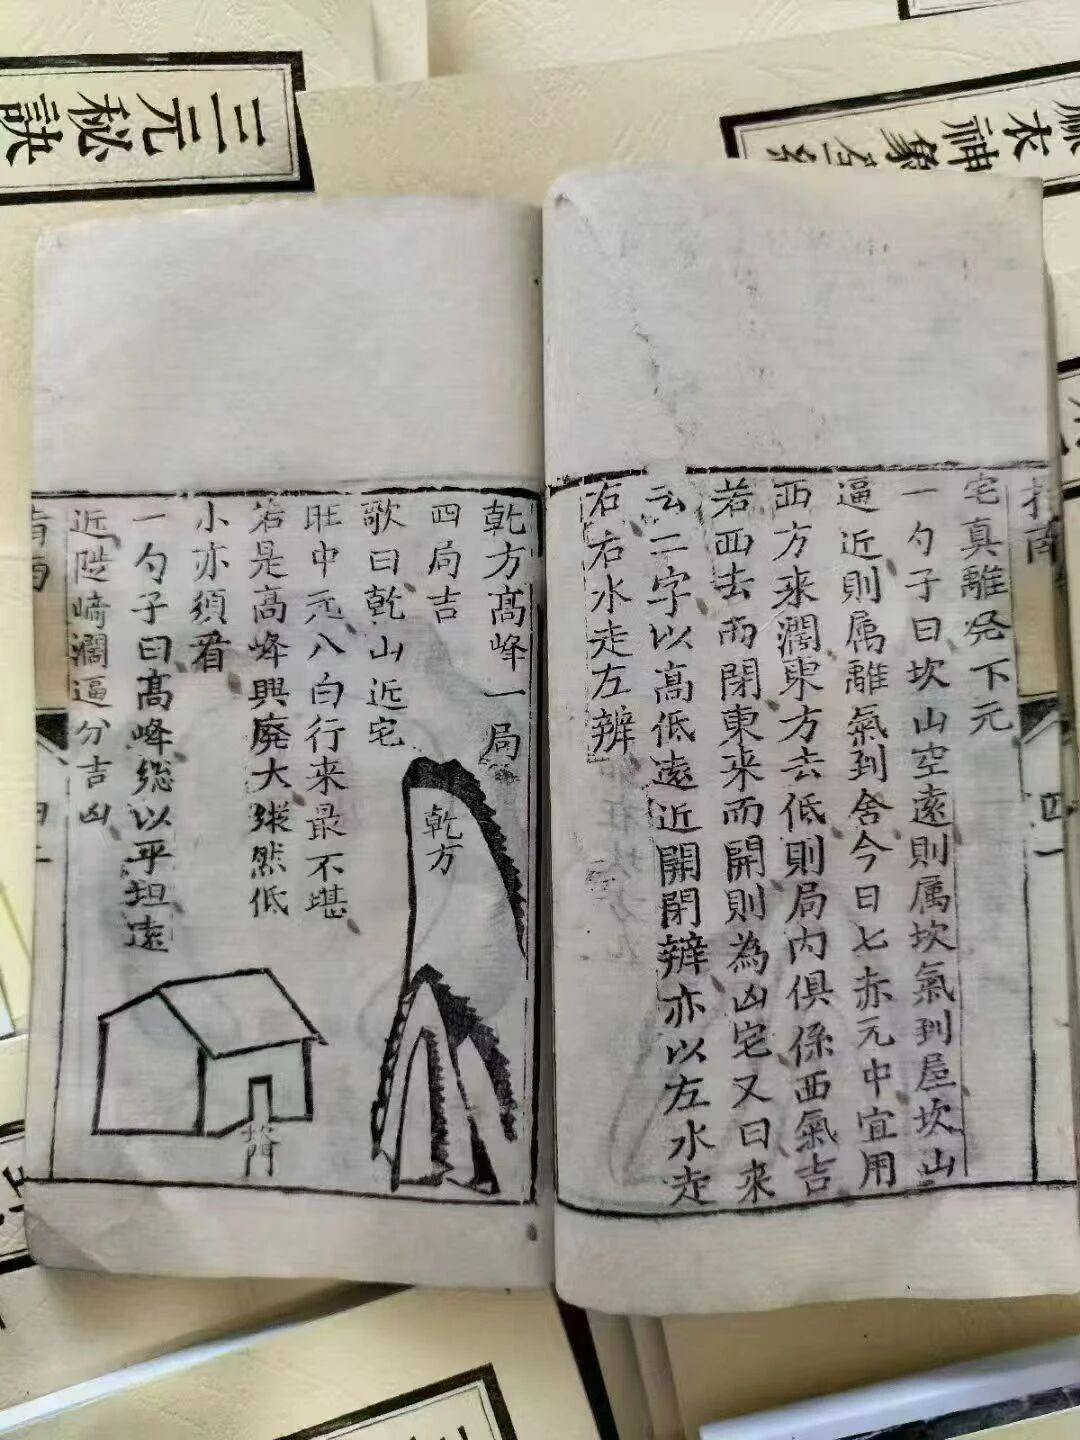 三元秘訣
宅真離発下元
一勺子曰坎山空遠則属坎氣到屋坎山
逼近則属離氣到舍今日七赤元中宜用
西方来濶東方去低則局内俱係西氣吉
若西去而閉東来而開則為凶宅又曰来
去二字以高低遠近開閉辨亦以左水走
右右水走左辨
乾方髙峰一局
四局吉
歌曰乾山近宅
旺中元八白行来最不堪
若是高峰興廢大縱然低
小亦須看
一勺子曰髙峰総以平坦遠
近陡﨑濶逼分吉凶
乾方